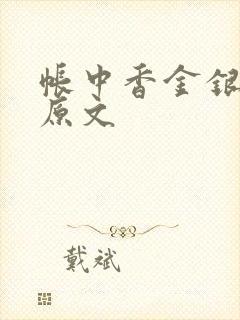 帐中香金银
原文
戴斌